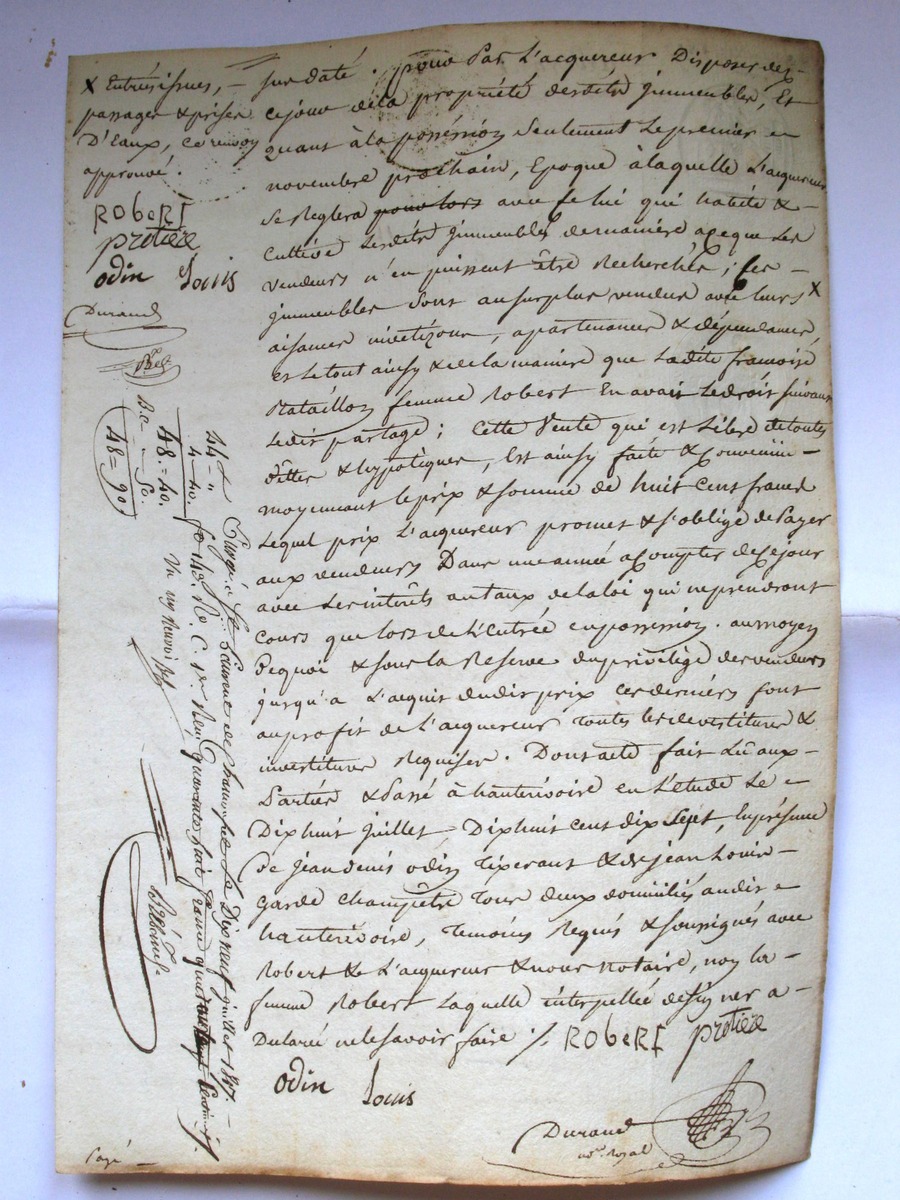 X Entrées issues, —
passages & prises
D'Eaux, ce renvoy
approuvé.
Robert
protière
odin Louis
Durand
sur daté. pour Par L'acquereur Disposer dez
ce jour de la propriété desdits jmmeubles, Et
quant à la possession seulement Le premier
novembre prochain, Epoque à laquelle L'acquereur
se Reglera pour lors avec celui qui habite &
Cultive Lesdits jmmeubles de maniere a ce que Les
vendeurs n'en puissent être Recherchés; ces —
jmmeubles sont au surplus vendus avec Leurs X
aisances, apartenances & dépendances
et Le tout ainsy & de la maniere que Ladite francoise
Bataillon femme Robert En avait Le droit suivant
Ledit partage; Cette Vente qui est Libre de toutes
dettes & hypotèques, Est ainsy faite & Convenue —
moyennant le prix & somme de huit Cent francs
Lequel prix L'acquereur promet & s'oblige de Payer
aux vendeurs Dans une année a Compter de Ce jour
avec Les interêts au taux de la loi qui ne prendront
Cours que lors de L'Entrée en possession. au moyen
De quoi & sous la Reserve du privilège des vendeurs
jusqu'a L'acquit dudit prix ces derniers font
au profit de L'acquereur toutes les devestitures &
investitures Requises. Dont acte fait Lû aux —
Parties & Passé à hauterivoire en L'etude Le
Dix huit juillet Dix huit cent dix sept, En présence
De jean denis odin Tixerant & de jean Louis —
garde champêtre tous deux domiciliés audit
hauterivoire, Temoins Requis & soussignés avec
Robert & L'acquereur & nous notaire, non la —
femme Robert Laquelle interpellée de signer a —
Déclaré ne le savoir faire ./. Robert protière
odin Louis
Durand
no.re Royal
44 f "
4 = 40.
48 = 40.
D.e — 50.
48 = 90
Enregistré à St Laurent de Chamousset Le Dix neuf juillet 1817. —
fo 140. Ro. C. 1re Reçu quarante huit francs quarante Centimes
payé —